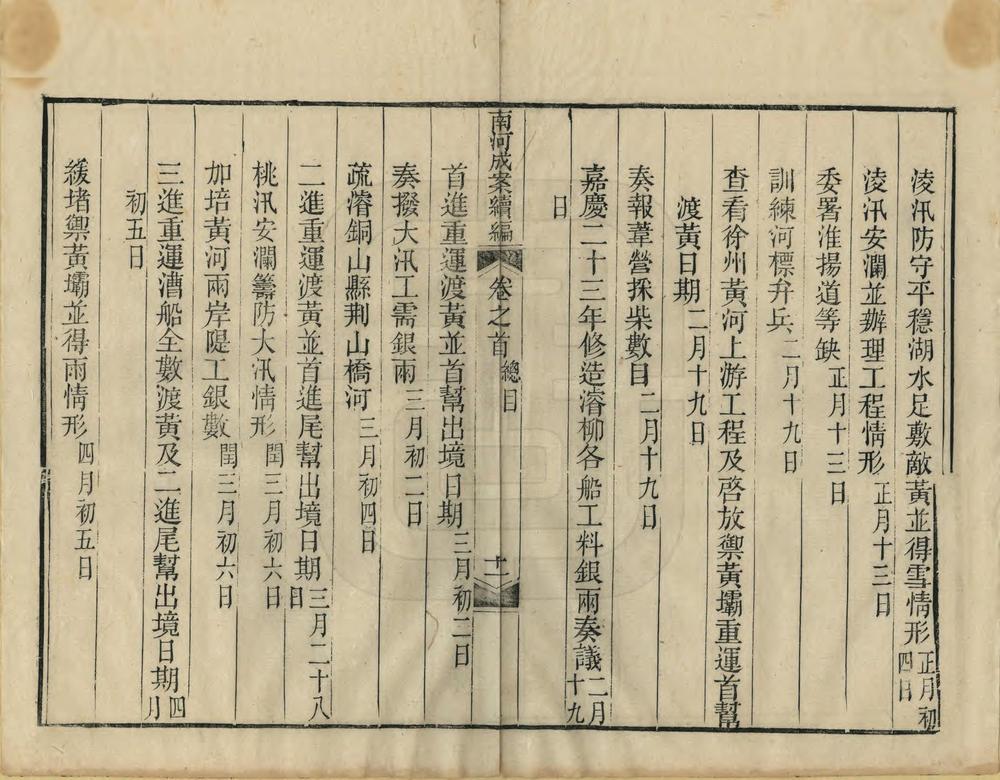 淩汛防守平穩湖水足敷敵黃並得雪情形正月初四日
淩汛安瀾並辦理工程情形正月十三日
委署淮揚道等缺正月十三日
訓練河標弁兵二月十九日
查看徐州黃河上游工程及啓放禦黃壩重運首幫
渡黃日期二月十九日
奏報葦營採柴數目二月十九日
嘉慶二十三年修造濬柳各船工料銀兩奏議二月十九
日
南河成案續編 卷之首 總目 十一
首進重運渡黃並首幫出境日期三月初二日
奏撥大汛工需銀兩三月初二日
疏濬銅山縣荆山橋河三月初四日
二進重運渡黃並首進尾幫出境日期三月二十八日
桃汛安瀾籌防大汛情形閏三月初六日
加培黃河兩岸隄工銀數閏三月初六日
三進重運漕船全數渡黃及二進尾幫出境日期四月
初五日
緩堵禦黃壩並得雨情形四月初五日